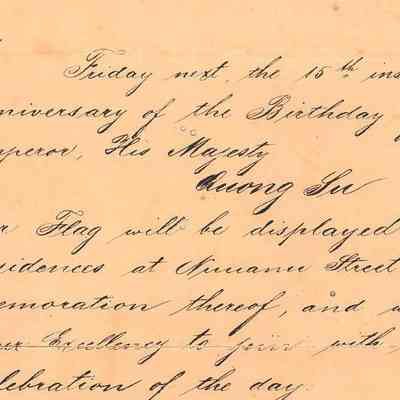 Friday next, the 15th ins
nniversary of the Birthday
mperor, His Majesty
Quong Su
r Flag will be displayed
sidences at Nuuanu Street
emoration thereof, and
our Excellency to join with
lebration of the day.